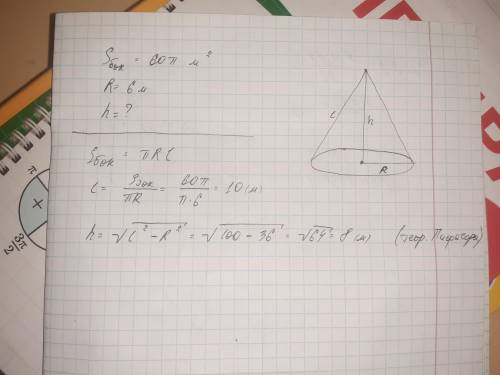 Sбок = 60π м²
R = 6 м
h = ?
Sбок = πRl
l = Sбок/πR = 60π/π·6 = 10 (м)
h = √l² − R² = √100 − 36 = √64 = 8 (м) (теор. Пифагора)
l
h
R
π
3π/2